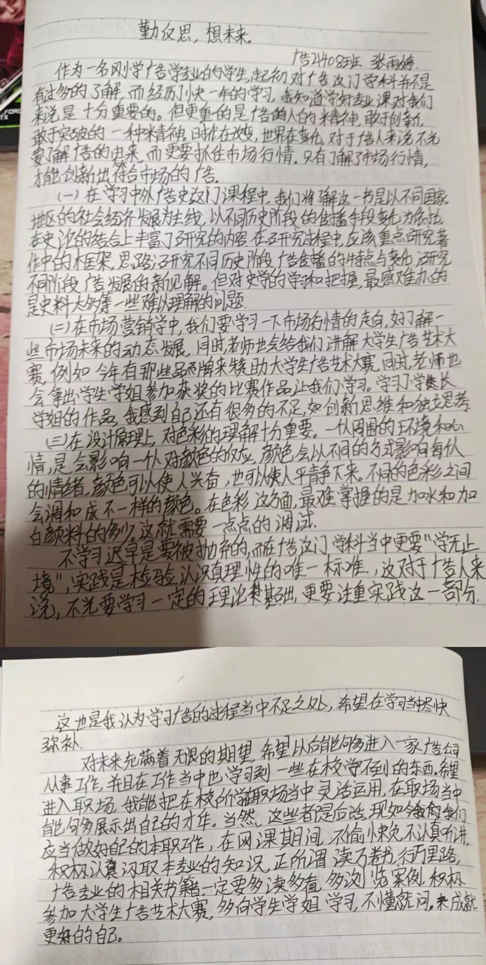 勤反思，想未来
广告2408班 张雨婷
作为一名刚学广告学专业的学生，起初对广告这门学科并不是
有过多的了解，而经历快一年的学习，我知道学好专业课对我们
来说是十分重要的。但更重的是广告的人的精神，敢于创新，
敢于突破的一种精神，时代在改变，世界在变化，对于广告人来说不光
要了解广告的由来，而更要抓住市场行情。只有了解了市场行情，
才能创新出符合市场的广告。
(一)在学习中外广告史这门课程中，我们将了解这一书是以不同国家
地区的社会经济发展为主线，以不同历史阶段的传播手段变化为
在史论的结合上丰富了研究的内容，在研究过程中，应该重点研究著
作中的框架，思路；研究不同历史阶段广告传播的特点与变化；研究
不同阶段广告发展的新见解。但对史学的学习和把握，最感难办的
是史料太多等一些难以理解的问题。
(二)在市场营销学中，我们要学习一下市场行情的走向，如了解一
些市场未来的动态发展，同时老师也会给我们讲解大学生广告艺术大
赛，例如今年有那些品牌来赞助大学生广告艺术大赛，同时，老师也
会拿出学生学姐参加获奖的比赛作品让我们学习。学习了学长
学姐的作品，我感到自己还有很多的不足，如创新思维和独立思考
(三)在设计原理上，对色彩的理解十分重要。一个人周围的环境和心
情，是会影响一个人对颜色的反应，颜色会以不同的方式影响每个人
的情绪，颜色可以使人兴奋，也可以使人平静下来。不同的色彩之间
会调和成不一样的颜色。在色彩这方面，最难掌握的是加水和加
白颜料的多少。这就需要一点点的调试。
不学习迟早是要被抛弃的，而在广告这门学科当中更要“学无止
境”，实践是检验认识真理性的唯一标准，这对于广告人来
说，不光要学习一定的理论基础，更要注重实践这一部分，
这也是我认为学习广告的过程当中不足之处，希望在学习当中尽快
弥补。
对未来充满着无限的期望，希望以后能够进入一家广告公司
从事工作，并且在工作当中也学习到一些在校学不到的东西，希望
进入职场，我能把在校所学在职场当中灵活运用，在职场当中
能够多展示出自己的才华。当然，这些者是后话，现如今我们
应当做好自己的本职工作，在网课期间，不偷懒不认真听讲，
积极认真汲取本专业的知识，正所谓读万卷书，行万里路，
广告专业的相关书籍一定要多读多看，多浏览案例，积极
参加大学生广告艺术大赛，多向学生学姐学习，不懂就问，来成就
更好的自己。